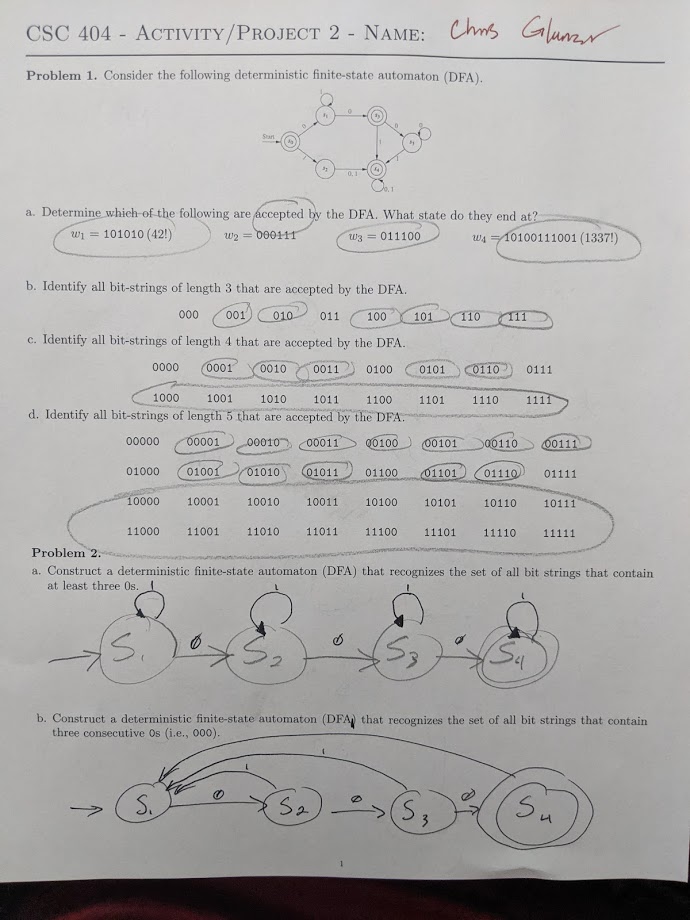 CSC 404 - Activity/Project 2 - Name: Chris
Problem 1. Consider the following deterministic finite-state automaton (DFA).
1
s₁ 0 s₃
0 0 0
Start s₀ 1 s₅
1 1
s₂ 0, 1 s₄
0, 1
a. Determine which of the following are accepted by the DFA. What state do they end at?
w₁ = 101010 (42!) w₂ = 000111 w₃ = 011100 w₄ = 10100111001 (1337!)
b. Identify all bit-strings of length 3 that are accepted by the DFA.
000 001 010 011 100 101 110 111
c. Identify all bit-strings of length 4 that are accepted by the DFA.
0000 0001 0010 0011 0100 0101 0110 0111
1000 1001 1010 1011 1100 1101 1110 1111
d. Identify all bit-strings of length 5 that are accepted by the DFA.
00000 00001 00010 00011 00100 00101 00110 00111
01000 01001 01010 01011 01100 01101 01110 01111
10000 10001 10010 10011 10100 10101 10110 10111
11000 11001 11010 11011 11100 11101 11110 11111
Problem 2.
a. Construct a deterministic finite-state automaton (DFA) that recognizes the set of all bit strings that contain
at least three 0s.
1 1 1 1
S₁ 0 S₂ 0 S₃ 0 S₄
b. Construct a deterministic finite-state automaton (DFA) that recognizes the set of all bit strings that contain
three consecutive 0s (i.e., 000).
1 1
S₁ 0 S₂ 0 S₃ 0 S₄
1